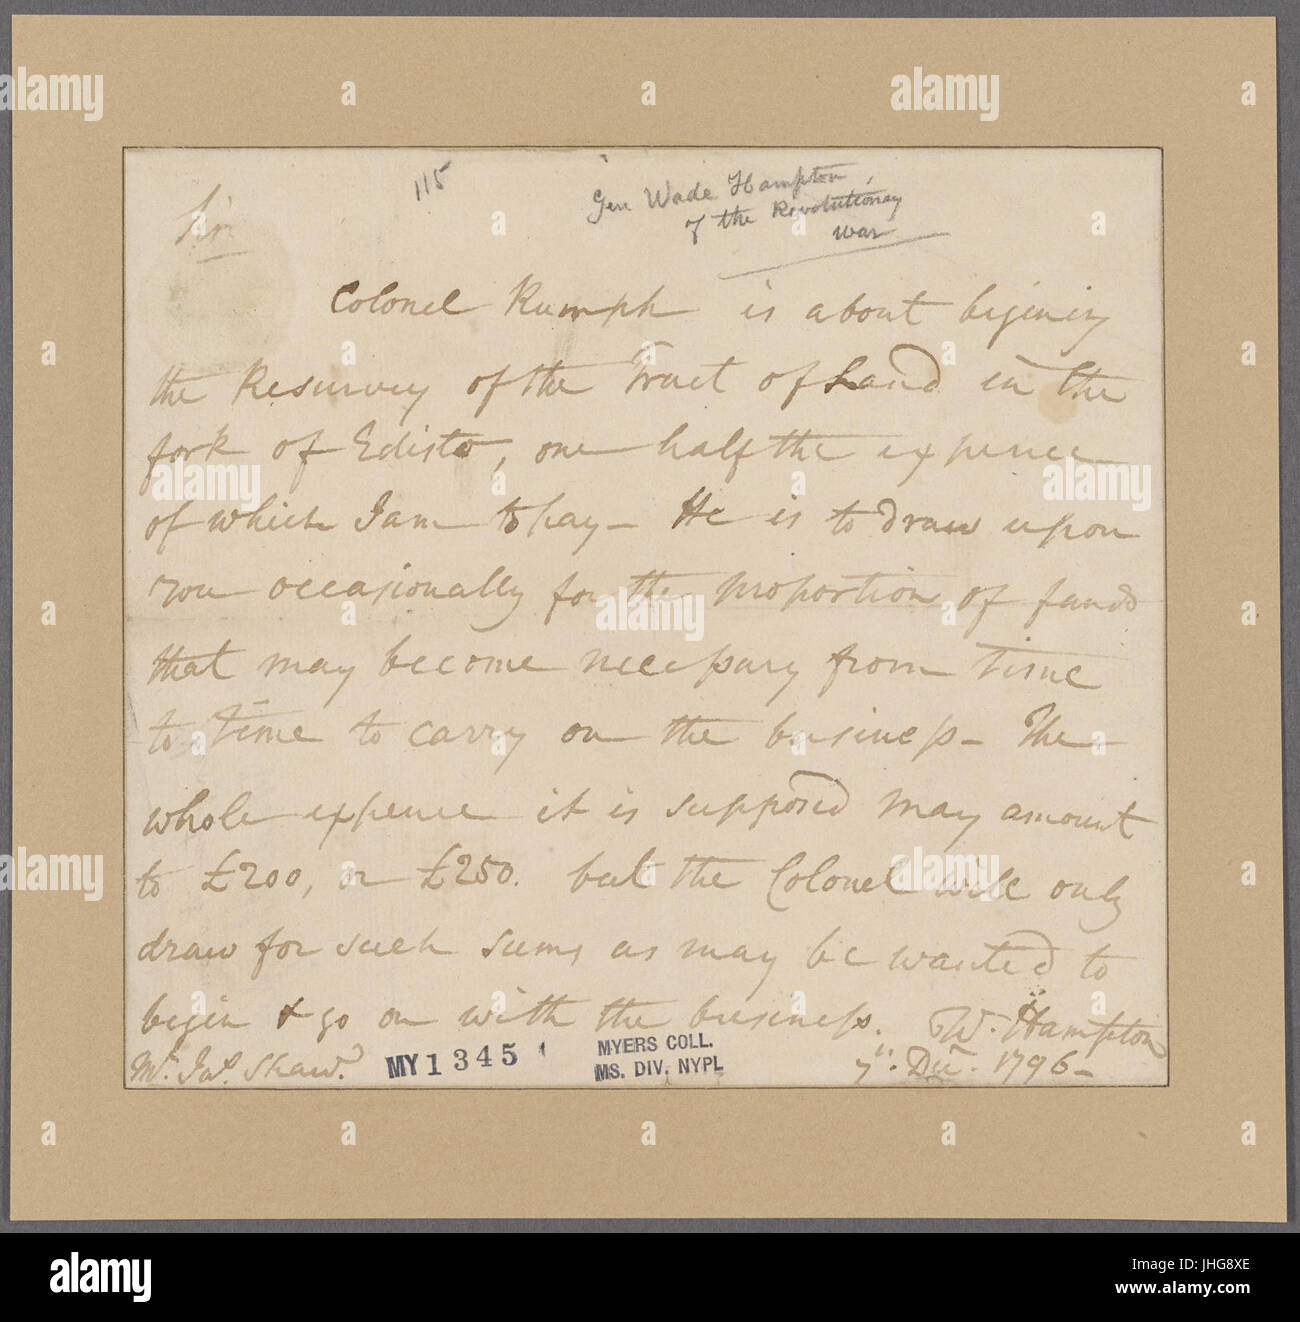 115
Gen Wade Hampton,
of the Revolutionary
war
Sir
Colonel Rumph is about begining
the Resurvey of the Tract of Land in the
fork of Edisto, one half the expence
of which I am to pay – He is to draw upon
you occasionally for the proportion of funds
that may become necessary from time
to time to carry on the business – The
whole expence it is supposed may amount
to £200, or £250. but the Colonel will only
draw for such sums as may be wanted to
begin & go on with the business.
W. Hampton
Mr. Jas. Shaw.
7th. Decr. 1796 –
MY 1345
MYERS COLL.
MS. DIV. NYPL
alamy
a
alamy
Image ID: JHG8XE
www.alamy.com